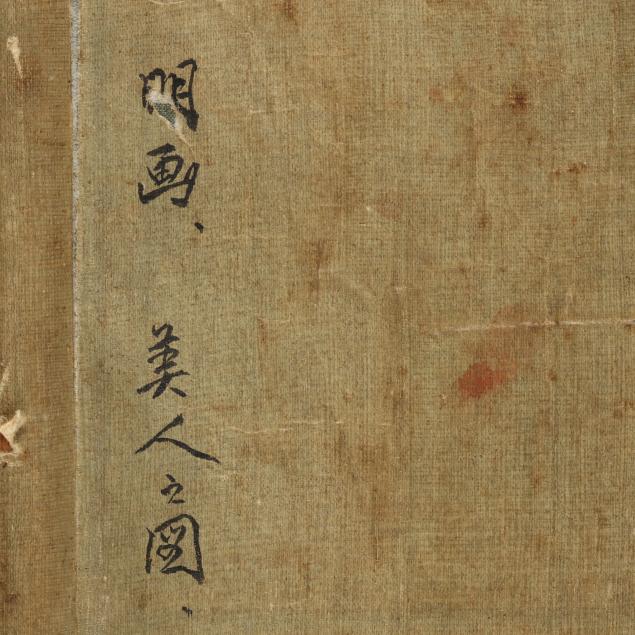 明画、美人之图、